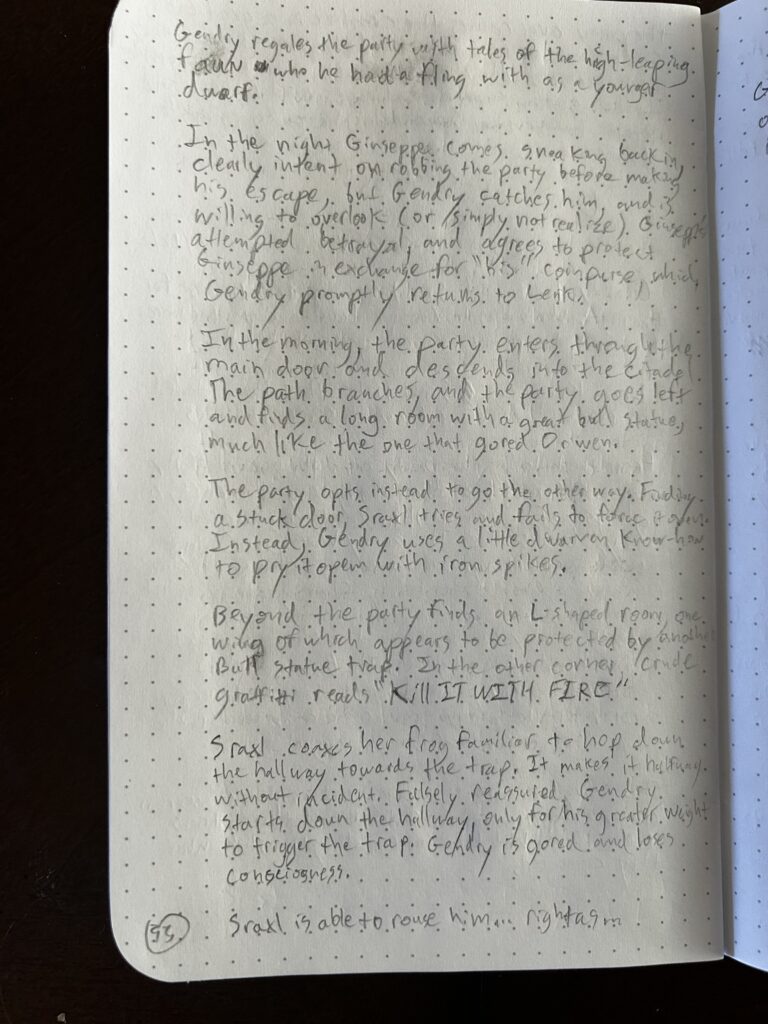 Gendry regales the party with tales of the high-leaping
faun who he had a fling with as a younger
dwarf.
In the night Giuseppe comes sneaking back in,
clearly intent on robbing the party before making
his escape, but Gendry catches him, and is
willing to overlook (or simply not realize) Giuseppe's
attempted betrayal, and agrees to protect
Giuseppe in exchange for "his" coinpurse, which
Gendry promptly returns to
In the morning, the party enters through the
main door and descends into the citadel
The path branches, and the party goes left
and finds a long room with a great bull statue,
much like the one that gored Orwen.
The party opts instead to go the other way. Finding
a stuck door, Sraxl tries and fails to force it open.
Instead, Gendry uses a little dwarven know-how
to pry it opem with iron spikes.
Beyond the party finds an L-shaped room, one
wing of which appears to be protected by another
Bull statue trap. In the other corner, crude
graffitti reads "Kill IT WITH FIRE"
Sraxl coaxes her frog familiar to hop down
the hallway towards the trap. It makes it halfway
without incident. Falsely reassured, Gendry
starts down the hallway, only for his greater weight
to trigger the trap. Gendry is gored and loses
consciosness.
Sraxl is able to rouse him... right as...
53